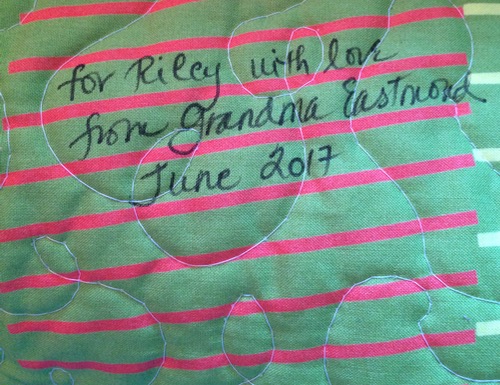 for Riley with love
from Grandma Eastmond
June 2017